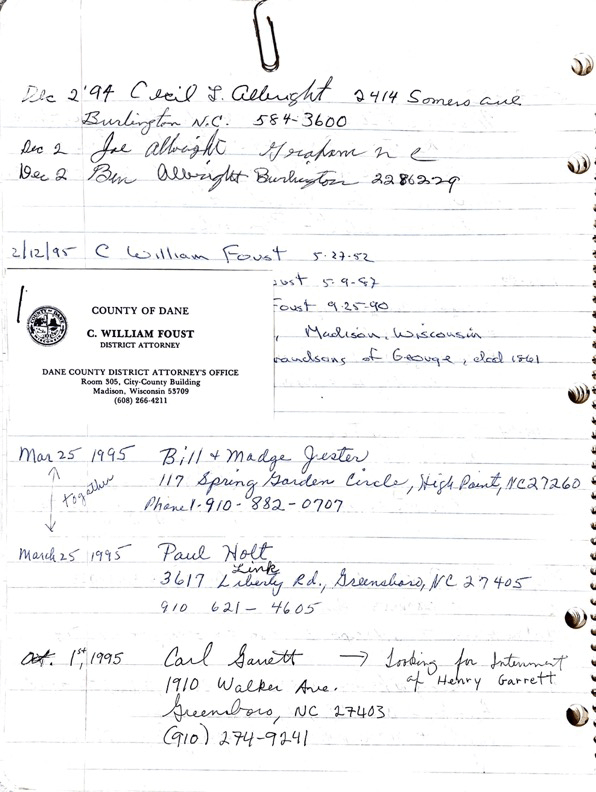 Dec 2 '94 Cecil L. Albright 2414 Somers ave
Burlington N.C. 584-3600
Dec 2 Joe Albright Graham n c
Dec 2 Ben Albright Burlington 2286229
2/12/95 C William Foust 5-27-52
oust 5-9-87
Foust 9-25-90
, Madison, Wisconsin
randsons of George, died 1861
COUNTY OF DANE
C. WILLIAM FOUST
DISTRICT ATTORNEY
DANE COUNTY DISTRICT ATTORNEY'S OFFICE
Room 305, City-County Building
Madison, Wisconsin 53709
(608) 266-4211
Mar 25 1995 Bill & Madge Jester
117 Spring Garden Circle, High Point, NC 27260
Phone 1-910-882-0707
together
March 25 1995 Paul Holt
Link
3617 Liberty Rd., Greensboro, NC 27405
910 621-4605
Oct. 1st, 1995 Carl Garrett → Looking for Interment
of Henry Garrett
1910 Walker Ave.
Greensboro, NC 27403
(910) 274-9241